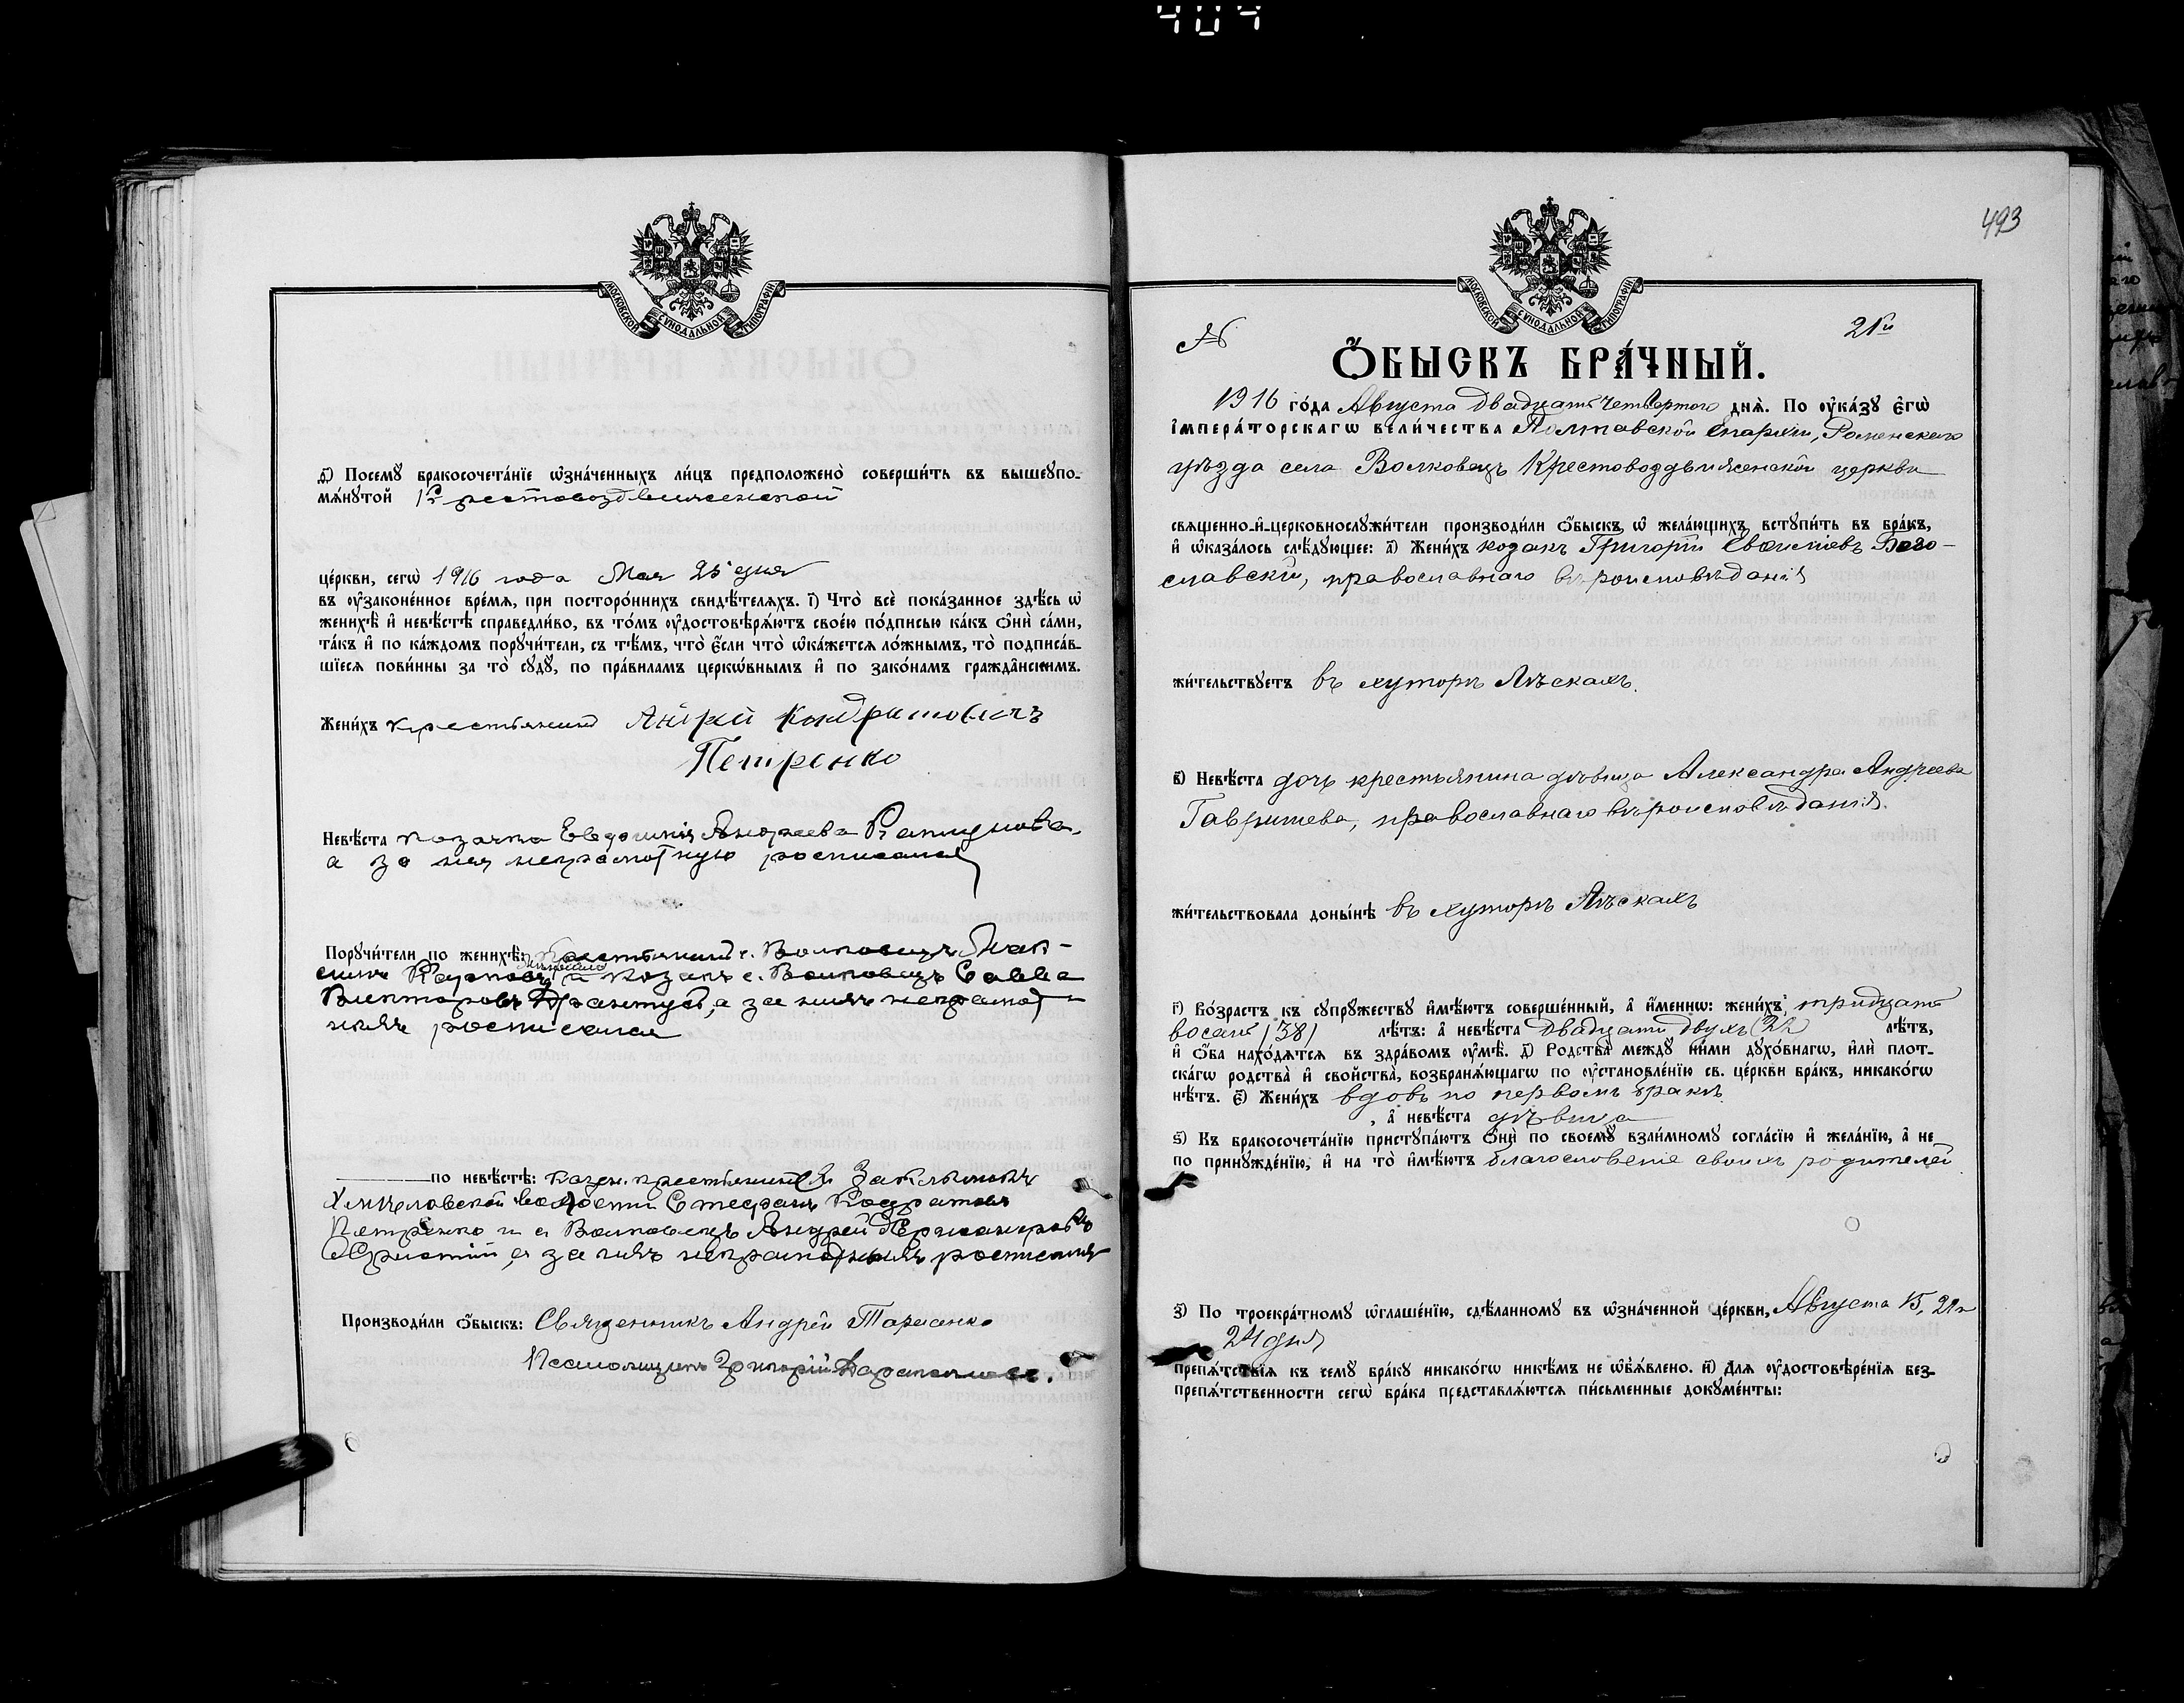 404
МОСКОВСКОЙ СѴНОДАЛЬНОЙ ТИПОГРАФІИ
ѳ҃) Посемꙋ бракосочета́нїе ѡзна́ченныхъ ли́цъ предположено̀ соверши́ть въ вышеꙋпо-
мѧ́нꙋтой Крестовоздвиженской
це́ркви, сегѡ̀ 1916 года Мая 25 дня
въ ᲂу҆законе́нное вре́мѧ, при посторо́ннихъ свидѣ́телѧхъ. і҃) Что̀ всѐ пока́занное здѣ́сь ѡ҆
женихѣ̀ и҆ невѣ́стѣ справедли́во, въ то́мъ ᲂу҆достовѣрѧ́ютъ свое́ю по́дписью ка́къ ѻ҆нѝ са́ми,
та́къ и҆ по ка́ждомъ порꙋчи́тели, съ тѣ́мъ, что̀ є҆́сли что̀ ѡ҆ка́жетсѧ ло́жнымъ, то̀ подписа́в-
шїесѧ пови́нны за то̀ сꙋдꙋ̀, по пра́виламъ церкѡ́внымъ и҆ по зако́намъ гражда̂нскимъ.
Жени́хъ крестьянинъ Андрей Кондратовичъ
Петренко
Невѣ́ста козачка Евдокия Андреева
а за нея неграмотную росписался
Порꙋчи́тели по женихѣ̀: крестьянинъ с. Волковецъ Мак-
симъ Карповъ и козакъ с. Волковецъ Савва
Викторовъ а за нихъ неграмот-
ныхъ росписался
по невѣ́стѣ: казен. крестьянинъ
волости Стефанъ Кодратовъ
Петренко и с. Волковецъ Андрей
а за нихъ неграмотныхъ росписался
Производи́ли ѻ҆́быскъ: Священникъ Андрей
Псаломщикъ Григорій
493
МОСКОВСКОЙ СѴНОДАЛЬНОЙ ТИПОГРАФІИ
№ 21й
Ѻ҆́БЫСКЪ БРА́ЧНЫЙ.
1916 го́да Августа двадцать четвертого днѧ̀. По ᲂу҆ка́зꙋ Є҆гѡ̀
І҆мпера́торскагѡ вели́чества Полтавской Епархіи, Роменскаго
уѣзда села Волковецъ Крестовоздвиженской церкви
свѧщенно-и҆-церковнослꙋжи́тели производи́ли ѻ҆́быскъ, ѡ҆ жела́ющихъ встꙋпи́ть въ бра́къ,
и҆ ѡ҆каза́лось слѣ́дꙋющее: а҃) Жени́хъ козакъ Григорій Бого-
славскій, православнаго вѣроисповѣданія
жи́тельствꙋетъ въ хуторѣ Лѣскахъ.
в҃) Невѣ́ста дочь крестьянина дѣвица Александра Андреева
Гавришева, православнаго вѣроисповѣданія.
жи́тельствовала доны́нѣ въ хуторѣ Лѣскахъ
г҃) Во́зрастъ къ сꙋпрꙋ́жествꙋ и҆мѣ́ютъ соверше́нный, а҆ и҆́меннѡ: жени́хъ, тридцать
восемь /38/ лѣ́тъ: а҆ невѣ́ста двадцати двухъ (22) лѣ́тъ,
и҆ ѻ҆́ба нахо́дѧтсѧ въ здра́вомъ ᲂу҆мѣ̀. д҃) Родства̀ междꙋ̀ ни́ми дꙋхо́внагѡ, и҆лѝ пло́т-
ска́гѡ родства̀ и҆ сво́йства̀, возбранѧ́ющагѡ по ᲂу҆становле́нїю св. це́ркви бра́къ, никако́гѡ
нѣ́тъ. є҃) Жени́хъ вдовъ по первомъ бракѣ
, а҆ невѣ́ста дѣвица
ѕ҃) Къ бракосочета́нїю пристꙋпа́ютъ ѻ҆нѝ по своемꙋ̀ взаи́мномꙋ согла́сїю и҆ жела́нїю, а҆ не
по принꙋжде́нїю, и҆ на то̀ и҆мѣ́ютъ благословеніе своихъ родителей
з҃) По троекра́тномꙋ ѡ҆глаше́нїю, сдѣ́ланномꙋ въ ѡ҆зна́ченной це́ркви, Августа 15, 21 и
24 дня
препѧ́тствїѧ къ семꙋ̀ бра́кꙋ никако́гѡ никѣ́мъ не ѡ҆б̾ѧ́влено. и҃) Длѧ ᲂу҆достовѣре́нїѧ без-
препѧ́тственности сегѡ̀ бра́ка представлѧ́ютсѧ пи́сьменные докꙋме́нты: